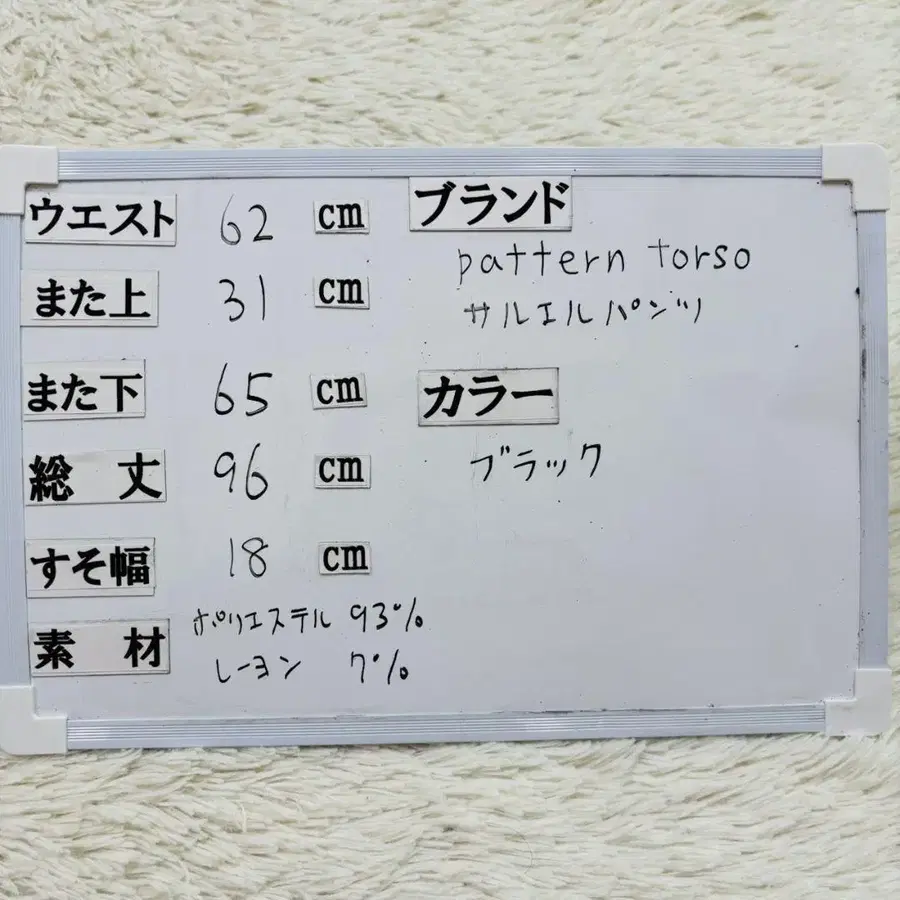 ウエスト 62 cm
また上 31 cm
また下 65 cm
総丈 96 cm
すそ幅 18 cm
素材 ポリエステル 93%
レーヨン 7%
ブランド
pattern torso
サルエルパンツ
カラー
ブラック